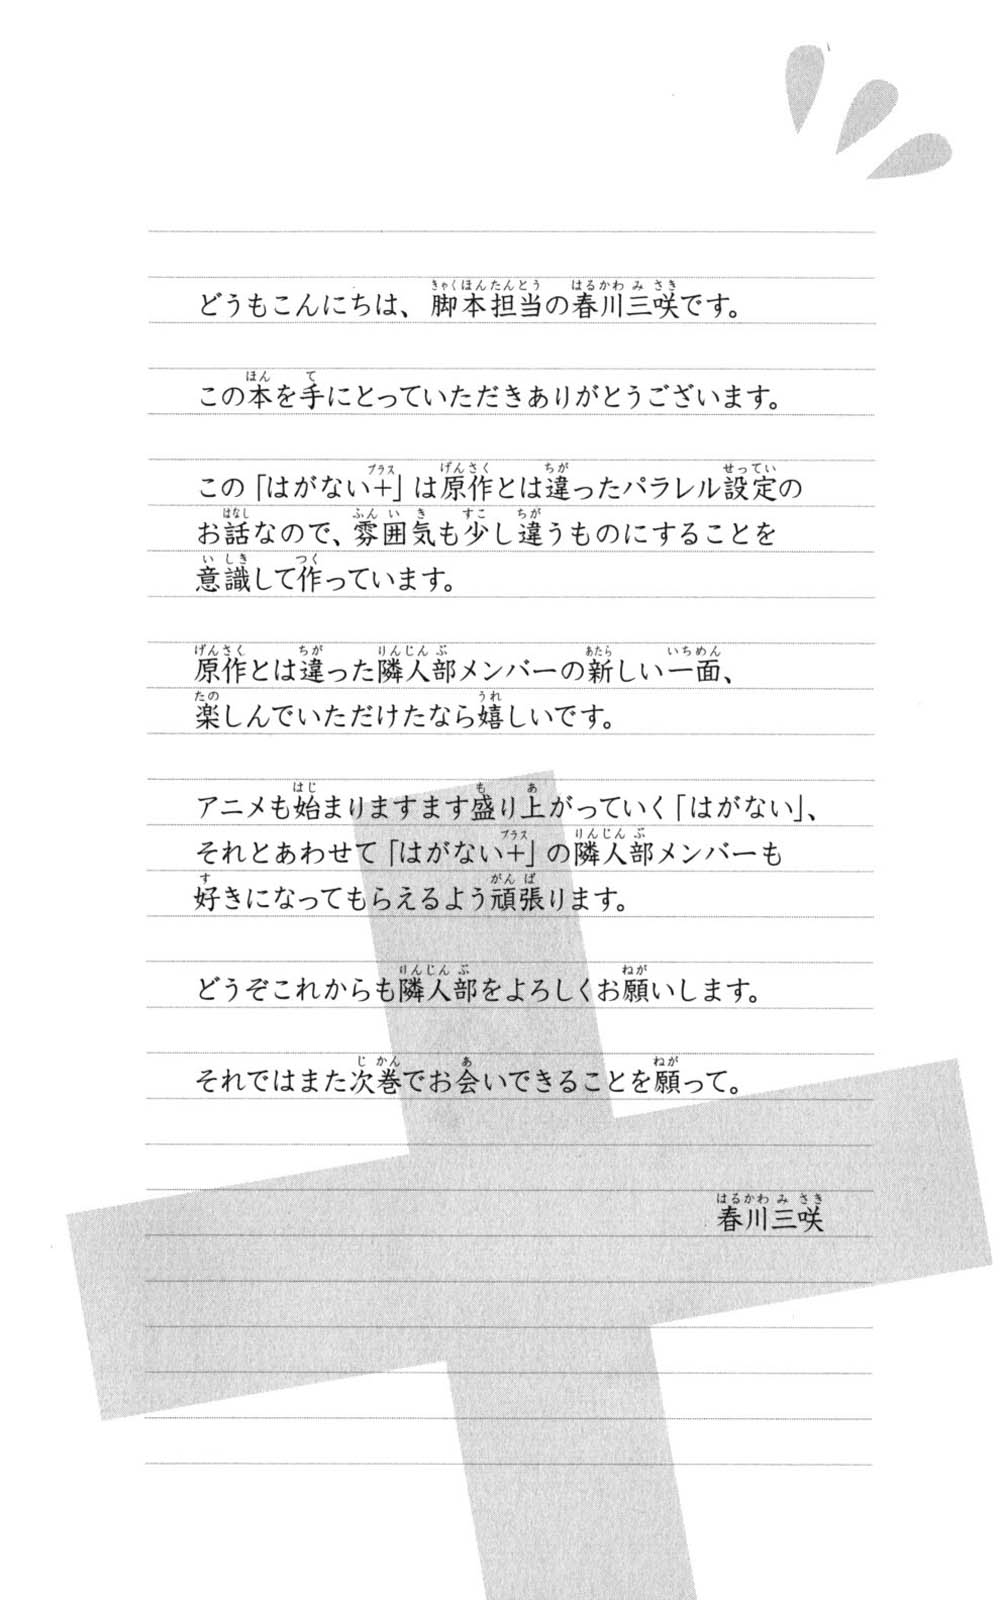 どうもこんにちは、脚本担当の春川三咲です。
この本を手にとっていただきありがとうございます。
この「はがない+」は原作とは違ったパラレル設定の
お話なので、雰囲気も少し違うものにすることを
意識して作っています。
原作とは違った隣人部メンバーの新しい一面、
楽しんでいただけたなら嬉しいです。
アニメも始まりますます盛り上がっていく「はがない」、
それとあわせて「はがない+」の隣人部メンバーも
好きになってもらえるよう頑張ります。
どうぞこれからも隣人部をよろしくお願いします。
それではまた次巻でお会いできることを願って。
春川三咲